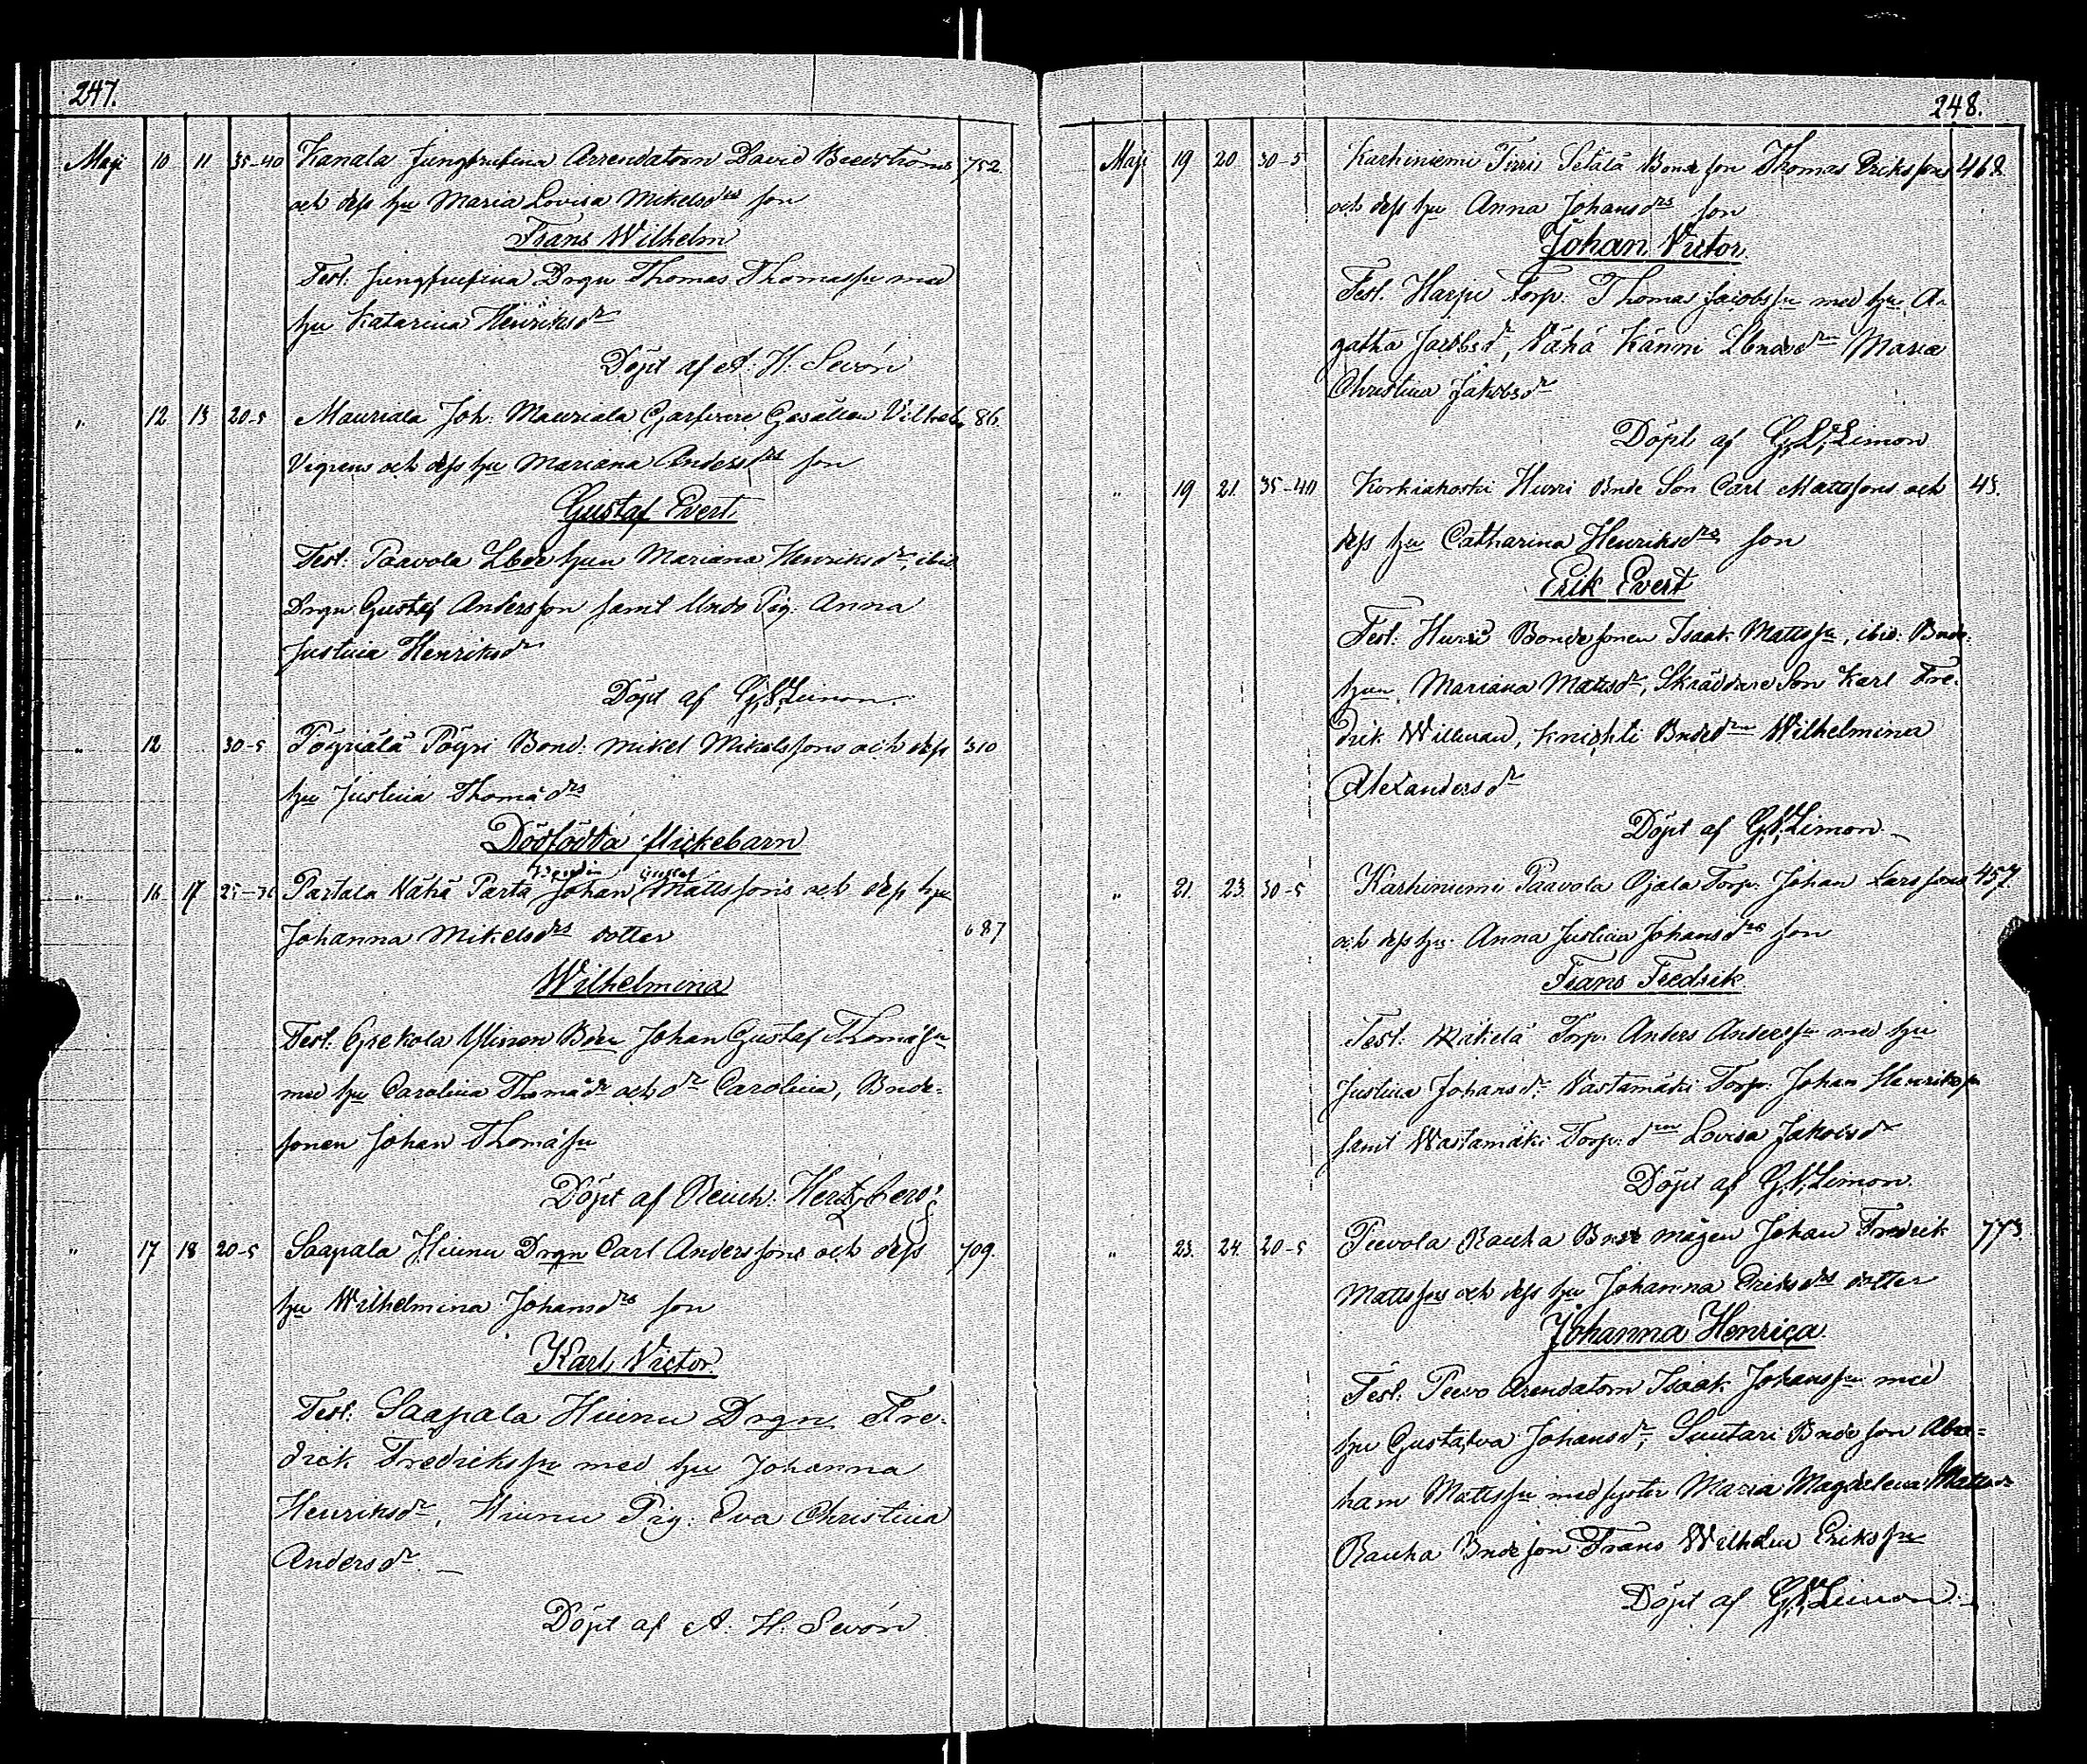 247.
Maji 10 11 35-40 Kanala Jungfrufina Arrendatorn David Beckströms 752.
och dess hu Maria Lovisa Mikelsdrs son
Frans Wilhelm
Test: Jungfrufina Drgn Thomas Thomassn med
hu Katarina Henriksdr
Döpt af A. H. Sevón
" 12 13 20-5 Mauriala Joh: Mauriala Garfvare Gesällen Vilhelm 86.
Vigrens och dess hu Mariana Andersdrs son
Gustaf Evert.
Test: Paavola Lbde hun Mariana Henriksdr, ibid
Drgn Gustaf Andersson samt Undo Pig: Anna
Justina Henriksdr
Döpt af G. V. Limon.
" 12 30-5 Pöyriälä Pöyri Bond: Mikel Mikelssons och dess 310
hu Justina Thomädrs
Dödfödda flickebarn
" 16 17 25-30 Partala Vähä Parta Johan Gustaf Mattssons och dess hu
Johanna Mikelsdrs dotter 687
Wilhelmina
Test. Grekola Ylinen Bden Johan Gustaf Thomäsn
med hu Carolina Thomädr och dr Carolina, Bnde-
sonen Johan Thomäsn
Döpt af Reinh. Hertzberg
" 17 18 20-5 Saapala Hiinu Drgn Carl Anderssons och dess 709.
hu Wilhelmina Johansdrs son
Karl Victor.
Test: Saapala Hiinu Drgn Fre-
drik Frediksn med hu Johanna
Henriksdr, Hiinu Pig: Eva Christina
Andersdr. —
Döpt af A: H: Sevón
248.
Maji 19 20 30-5 Karhiniemi Tirri Setälä Bonde son Thomas Erikssons 468
och dess hu Anna Johansdrs son
Johan Victor
Test. Harju Torp: Thomas Jacobssn med hu A-
gatha Jacobsdr, Vähä Känni Lbondedrn Maria
Christina Jakobsdr
Döpt af G. V. Limon
" 19 21. 35-40 Korkiakoski Hurri Bnde Son Carl Mattssons och 45.
dess hu Catharina Henriksdrs son
Erik Evert
Test: Hurri Bondesonen Isaak Mattssn, ibid: Bnde-
hun Mariana Mattsdr, Skräddare Son Karl Fre-
drik Willman, Knihti Bndedrn Wilhelmina
Alexandersdr
Döpt af G. V. Limon. —
" 21. 23. 30-5 Karhiniemi Paavola Ojala Torp: Johan Larssons 457.
och dess hu. Anna Justina Johansdrs son
Frans Fredrik
Test: Mäkelä Torp. Anders Anderssn med hu
Justina Johansdr, Vastamäki Torp: Johan Henrikssn
samt Wastamäki Torp: drn Lovisa Jakobsdr
Döpt af G. V. Limon.
" 23. 24. 20-5 Peevola Rauha Bnde mågen Johan Fredrik 773.
Mattssons och dess hu Johanna Eriksdrs dotter
Johanna Henrica.
Test. Peevo Arendatorn Isaak Johanssn med
hu Gustafva Johansdr, Suutari Bnde son Abra-
ham Mattssn med syster Maria Magdalena Mattsdr
Rauha Bnde son Frans Wilhelm Erikssn
Döpt af G. V. Limon. —